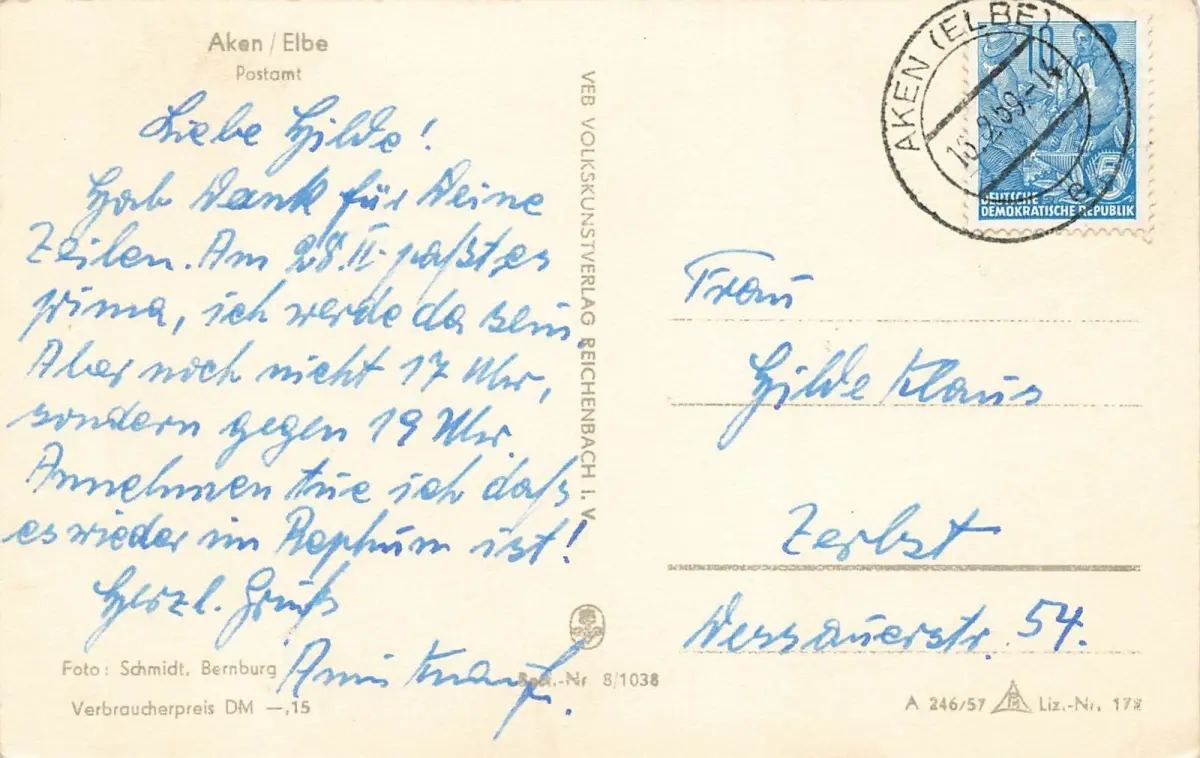 Aken / Elbe
Postamt
Liebe Hilde!
Hab Dank für Deine
Zeilen. Am 28. II. paßt es
prima, ich werde da sein.
Aber noch nicht 17 Uhr,
sondern gegen 19 Uhr.
Annehmen tue ich daß
es wieder im Rephum ist!
Herzl. Gruß
Foto: Schmidt, Bernburg
Verbraucherpreis DM —,15
VEB VOLKSKUNSTVERLAG REICHENBACH I. V.
Best.-Nr 8/1038
AKEN (ELBE)
10
5
DEUTSCHE
DEMOKRATISCHE REPUBLIK
Frau
Hilde Klaus
Zerbst
Dessauerstr. 54.
A 246/57
Liz.-Nr.